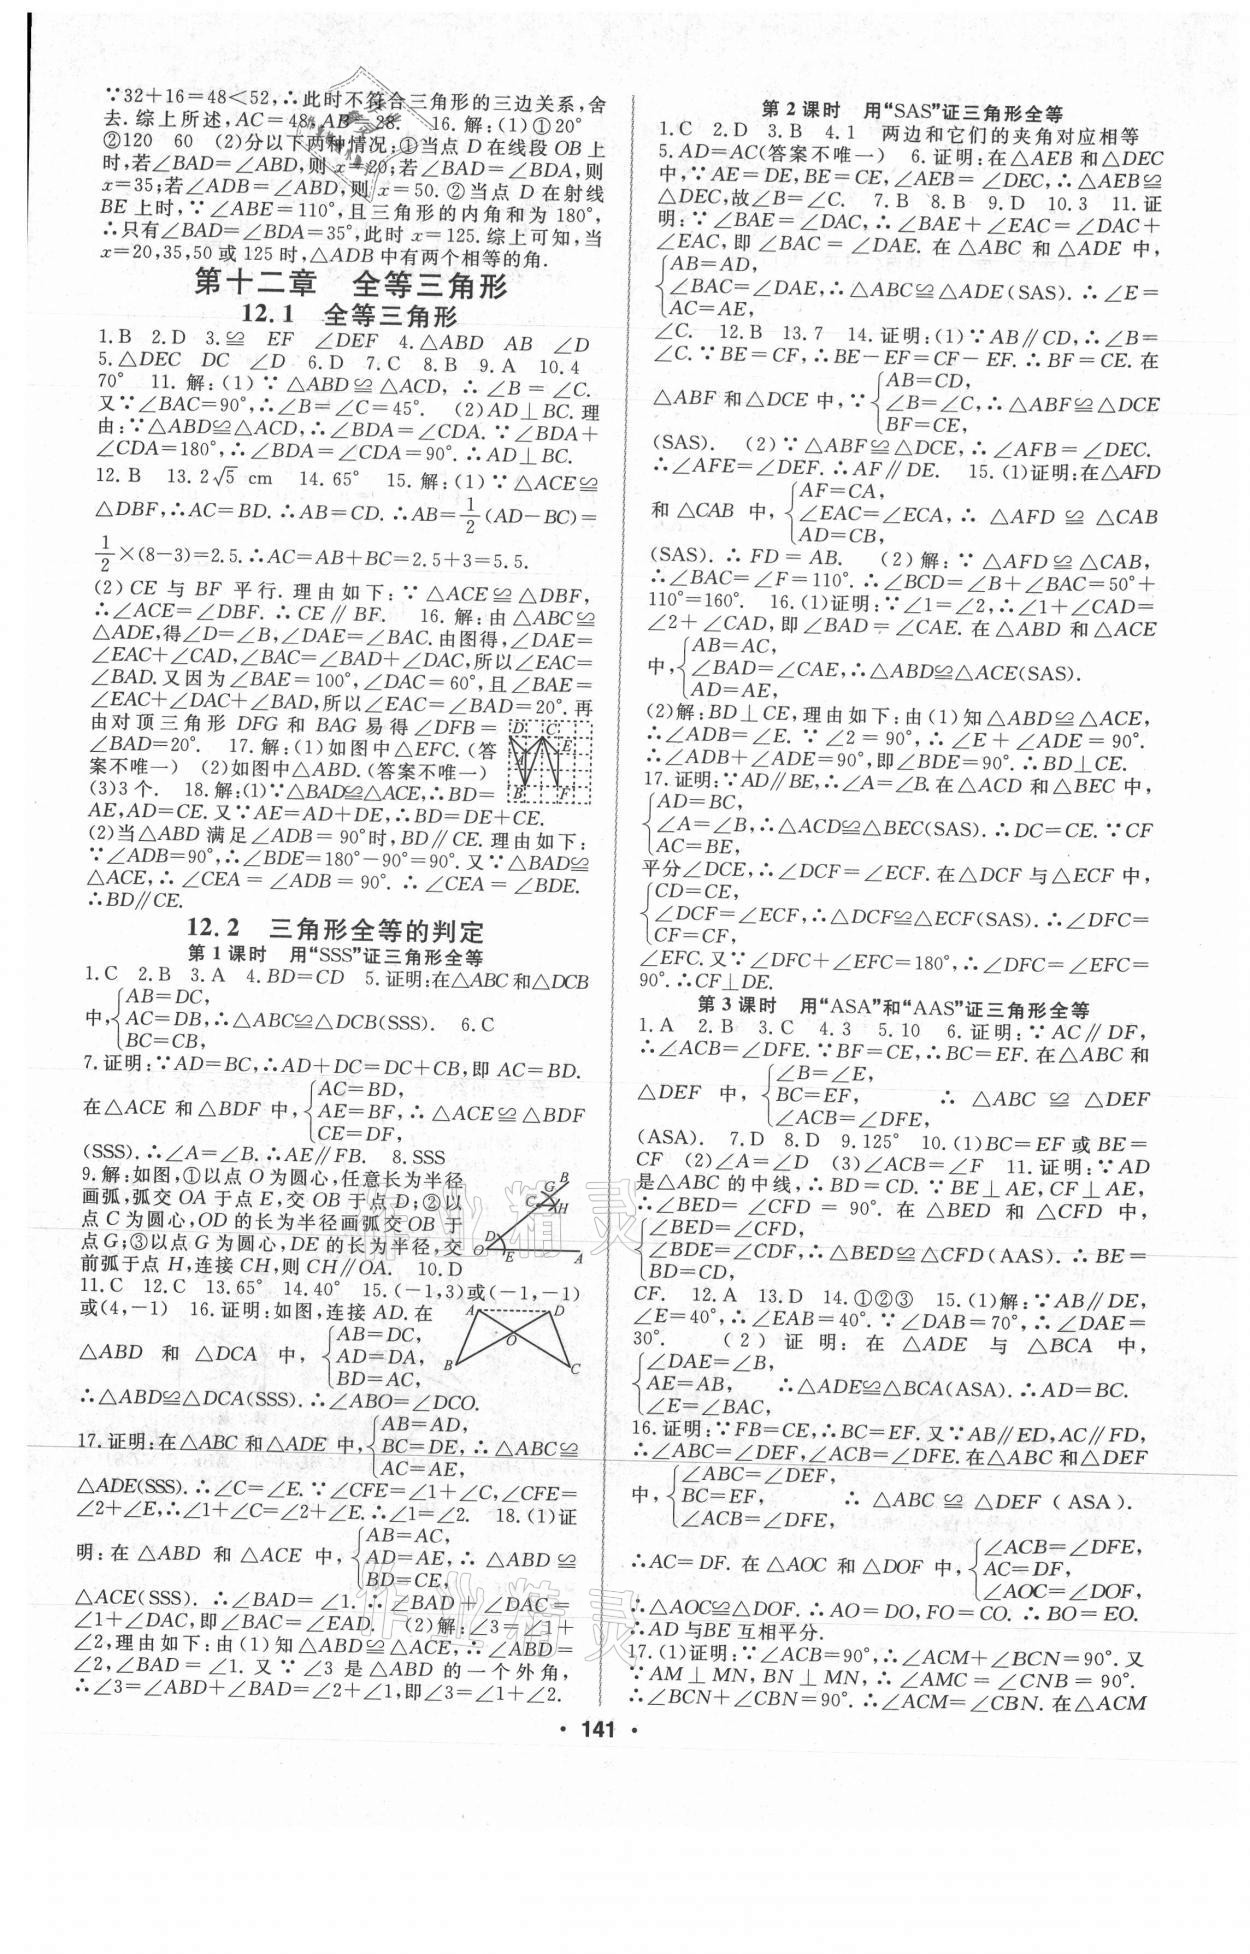 ∵32+16=48<52,∴此时不符合三角形的三边关系,舍
去.综上所述,AC=48,AB=28. 16.解:(1)①20°
②120 60 (2)分以下两种情况:①当点D在线段OB上
时,若∠BAD=∠ABD,则x=20;若∠BAD=∠BDA,则
x=35;若∠ADB=∠ABD,则x=50.②当点D在射线
BE上时,∵∠ABE=110°,且三角形的内角和为180°,
∴只有∠BAD=∠BDA=35°,此时x=125.综上可知,当
x=20,35,50或125时,△ADB中有两个相等的角.
第十二章 全等三角形
12.1 全等三角形
1.B 2.D 3.≌ EF ∠DEF 4.△ABD AB ∠D
5.△DEC DC ∠D 6.D 7.C 8.B 9.A 10.4
70° 11.解:(1)∵△ABD≌△ACD,∴∠B=∠C.
又∵∠BAC=90°,∴∠B=∠C=45°. (2)AD⊥BC.理
由:∵△ABD≌△ACD,∴∠BDA=∠CDA.∵∠BDA+
∠CDA=180°,∴∠BDA=∠CDA=90°.∴AD⊥BC.
12.B 13.2√5 cm 14.65° 15.解:(1)∵△ACE≌
△DBF,∴AC=BD.∴AB=CD.∴AB=1/2(AD-BC)=
1/2×(8-3)=2.5.∴AC=AB+BC=2.5+3=5.5.
(2)CE与BF平行.理由如下:∵△ACE≌△DBF,
∴∠ACE=∠DBF.∴CE∥BF. 16.解:由△ABC≌
△ADE,得∠D=∠B,∠DAE=∠BAC.由图得,∠DAE=
∠EAC+∠CAD,∠BAC=∠BAD+∠DAC,所以∠EAC=
∠BAD.又因为∠BAE=100°,∠DAC=60°,且∠BAE=
∠EAC+∠DAC+∠BAD,所以∠EAC=∠BAD=20°.再
由对顶三角形DFG和BAG易得∠DFB=
∠BAD=20°. 17.解:(1)如图中△EFC.(答
案不唯一) (2)如图中△ABD.(答案不唯一)
D C
A E
B F
(3)3个. 18.解:(1)∵△BAD≌△ACE,∴BD=
AE,AD=CE.又∵AE=AD+DE,∴BD=DE+CE.
(2)当△ABD满足∠ADB=90°时,BD∥CE.理由如下:
∵∠ADB=90°,∴∠BDE=180°-90°=90°.又∵△BAD≌
△ACE,∴∠CEA=∠ADB=90°.∴∠CEA=∠BDE.
∴BD∥CE.
12.2 三角形全等的判定
第1课时 用“SSS”证三角形全等
1.C 2.B 3.A 4.BD=CD 5.证明:在△ABC和△DCB
AB=DC,
中,{AC=DB,∴△ABC≌△DCB(SSS). 6.C
BC=CB,
7.证明:∵AD=BC,∴AD+DC=DC+CB,即AC=BD.
AC=BD,
在△ACE和△BDF中,{AE=BF,∴△ACE≌△BDF
CE=DF,
(SSS).∴∠A=∠B.∴AE∥FB. 8.SSS
9.解:如图,①以点O为圆心,任意长为半径
画弧,弧交OA于点E,交OB于点D;②以
点C为圆心,OD的长为半径画弧交OB于
点G;③以点G为圆心,DE的长为半径,交
前弧于点H,连接CH,则CH∥OA. 10.D
B
G
C H
D
O E A
11.C 12.C 13.65° 14.40° 15.(-1,3)或(-1,-1)
或(4,-1) 16.证明:如图,连接AD.在
AB=DC,
△ABD和△DCA中,{AD=DA,
BD=AC,
A D
O
B C
∴△ABD≌△DCA(SSS).∴∠ABO=∠DCO.
AB=AD,
17.证明:在△ABC和△ADE中,{BC=DE,∴△ABC≌
AC=AE,
△ADE(SSS).∴∠C=∠E.∵∠CFE=∠1+∠C,∠CFE=
∠2+∠E,∴∠1+∠C=∠2+∠E.∴∠1=∠2. 18.(1)证
AB=AC,
明:在△ABD和△ACE中,{AD=AE,∴△ABD≌
BD=CE,
△ACE(SSS).∴∠BAD=∠1.∴∠BAD+∠DAC=
∠1+∠DAC,即∠BAC=∠EAD. (2)解:∠3=∠1+
∠2,理由如下:由(1)知△ABD≌△ACE,∴∠ABD=
∠2,∠BAD=∠1.又∵∠3是△ABD的一个外角,
∴∠3=∠ABD+∠BAD=∠2+∠1,即∠3=∠1+∠2.
第2课时 用“SAS”证三角形全等
1.C 2.D 3.B 4.1 两边和它们的夹角对应相等
5.AD=AC(答案不唯一) 6.证明:在△AEB和△DEC
中,∵AE=DE,BE=CE,∠AEB=∠DEC,∴△AEB≌
△DEC,故∠B=∠C. 7.B 8.B 9.D 10.3 11.证
明:∵∠BAE=∠DAC,∴∠BAE+∠EAC=∠DAC+
∠EAC,即∠BAC=∠DAE.在△ABC和△ADE中,
AB=AD,
{∠BAC=∠DAE,∴△ABC≌△ADE(SAS).∴∠E=
AC=AE,
∠C. 12.B 13.7 14.证明:(1)∵AB∥CD,∴∠B=
∠C.∵BE=CF,∴BE-EF=CF-EF.∴BF=CE.在
AB=CD,
△ABF和△DCE中,∵{∠B=∠C,∴△ABF≌△DCE
BF=CE,
(SAS). (2)∵△ABF≌△DCE,∴∠AFB=∠DEC.
∴∠AFE=∠DEF.∴AF∥DE. 15.(1)证明:在△AFD
AF=CA,
和△CAB中,{∠EAC=∠ECA,∴△AFD≌△CAB
AD=CB,
(SAS).∴FD=AB. (2)解:∵△AFD≌△CAB,
∴∠BAC=∠F=110°.∴∠BCD=∠B+∠BAC=50°+
110°=160°. 16.(1)证明:∵∠1=∠2,∴∠1+∠CAD=
∠2+∠CAD,即∠BAD=∠CAE.在△ABD和△ACE
AB=AC,
中,{∠BAD=∠CAE,∴△ABD≌△ACE(SAS).
AD=AE,
(2)解:BD⊥CE,理由如下:由(1)知△ABD≌△ACE,
∴∠ADB=∠E.∵∠2=90°,∴∠E+∠ADE=90°.
∴∠ADB+∠ADE=90°,即∠BDE=90°.∴BD⊥CE.
17.证明:∵AD∥BE,∴∠A=∠B.在△ACD和△BEC中,
AD=BC,
{∠A=∠B,∴△ACD≌△BEC(SAS).∴DC=CE.∵CF
AC=BE,
平分∠DCE,∴∠DCF=∠ECF.在△DCF与△ECF中,
CD=CE,
{∠DCF=∠ECF,∴△DCF≌△ECF(SAS).∴∠DFC=
CF=CF,
∠EFC.又∵∠DFC+∠EFC=180°,∴∠DFC=∠EFC=
90°.∴CF⊥DE.
第3课时 用“ASA”和“AAS”证三角形全等
1.A 2.B 3.C 4.3 5.10 6.证明:∵AC∥DF,
∴∠ACB=∠DFE.∵BF=CE,∴BC=EF.在△ABC和
∠B=∠E,
△DEF中,{BC=EF, ∴△ABC≌△DEF
∠ACB=∠DFE,
(ASA). 7.D 8.D 9.125° 10.(1)BC=EF或BE=
CF (2)∠A=∠D (3)∠ACB=∠F 11.证明:∵AD
是△ABC的中线,∴BD=CD.∵BE⊥AE,CF⊥AE,
∴∠BED=∠CFD=90°.在△BED和△CFD中,
∠BED=∠CFD,
{∠BDE=∠CDF,∴△BED≌△CFD(AAS).∴BE=
BD=CD,
CF. 12.A 13.D 14.①②③ 15.(1)解:∵AB∥DE,
∠E=40°,∴∠EAB=40°.∵∠DAB=70°,∴∠DAE=
30°. (2)证明:在△ADE与△BCA中,
∠DAE=∠B,
{AE=AB, ∴△ADE≌△BCA(ASA).∴AD=BC.
∠E=∠BAC,
16.证明:∵FB=CE,∴BC=EF.又∵AB∥ED,AC∥FD,
∴∠ABC=∠DEF,∠ACB=∠DFE.在△ABC和△DEF
∠ABC=∠DEF,
中,{BC=EF, ∴△ABC≌△DEF(ASA).
∠ACB=∠DFE,
∠ACB=∠DFE,
∴AC=DF.在△AOC和△DOF中,{AC=DF,
∠AOC=∠DOF,
∴△AOC≌△DOF.∴AO=DO,FO=CO.∴BO=EO.
∴AD与BE互相平分.
17.(1)证明:∵∠ACB=90°,∴∠ACM+∠BCN=90°.又
∵AM⊥MN,BN⊥MN,∴∠AMC=∠CNB=90°.
∴∠BCN+∠CBN=90°.∴∠ACM=∠CBN.在△ACM
• 141 •
作业精灵
作业精灵